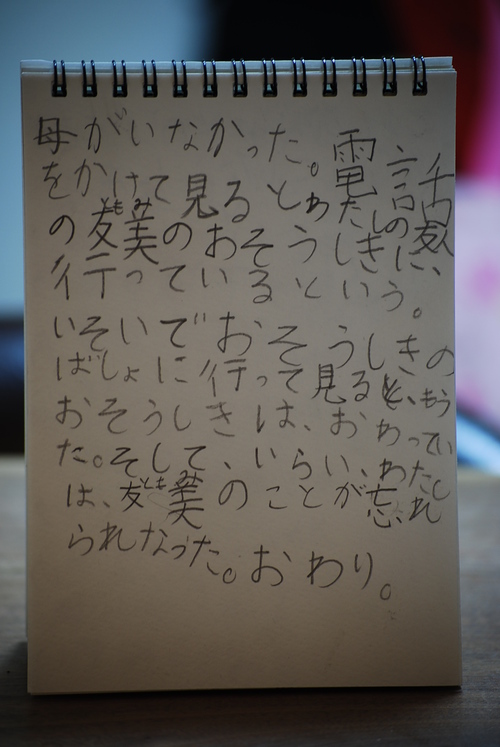 母がいなかった。電話
をかけて見るとわたしの友人
の友美のおそうしきに、
行っているという。
いそいでおそうしきの
ばしょに行って見ると、もう
おそうしきは、おわってい
た。そして、いらい、わたし
は、友美のことが忘れ
られなった。おわり。